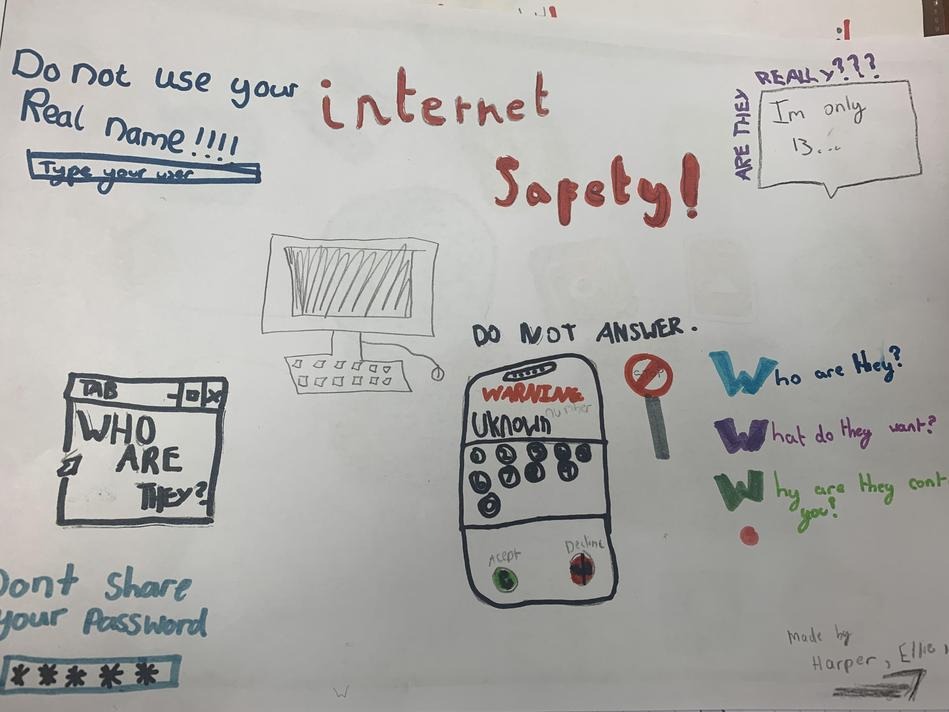 Do not use your
Real name!!!!
Type your user
internet
Safety!
REALLY???
ARE THEY
Im only
13...
DO NOT ANSWER.
WARNING
Uknown
number
Acept
Decline
STOP
Who are they?
What do they want?
Why are they cont
you?
TAB
WHO
ARE
THEY?
Dont Share
your Password
*****
Made by
Harper, Ellie,
W